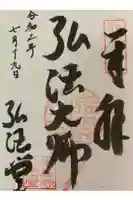 奉拝
弘法大師
弘法堂
令和二年
七月十九日